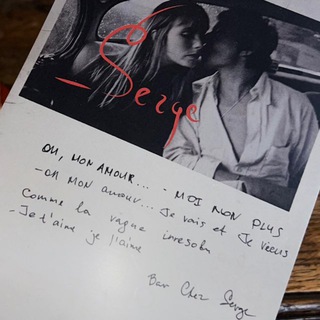 - Serge
OH, MON AMOUR... - MOI NON PLUS
- OH MON amour... Je vais et Je viens
Comme la vague irrésolu
- Je t'aime je t'aime
Bar Chez Serge